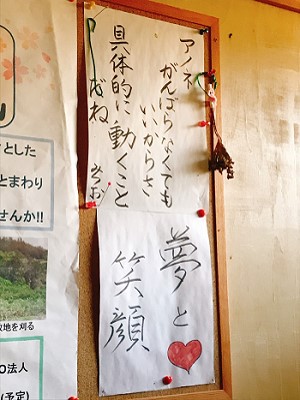 アノネ
がんばらなくても
いいからさ
具体的に動くこと
だね
みつを
夢と
笑顔
とした
とまわり
せんか!!
地を刈る
O法人
(予定)